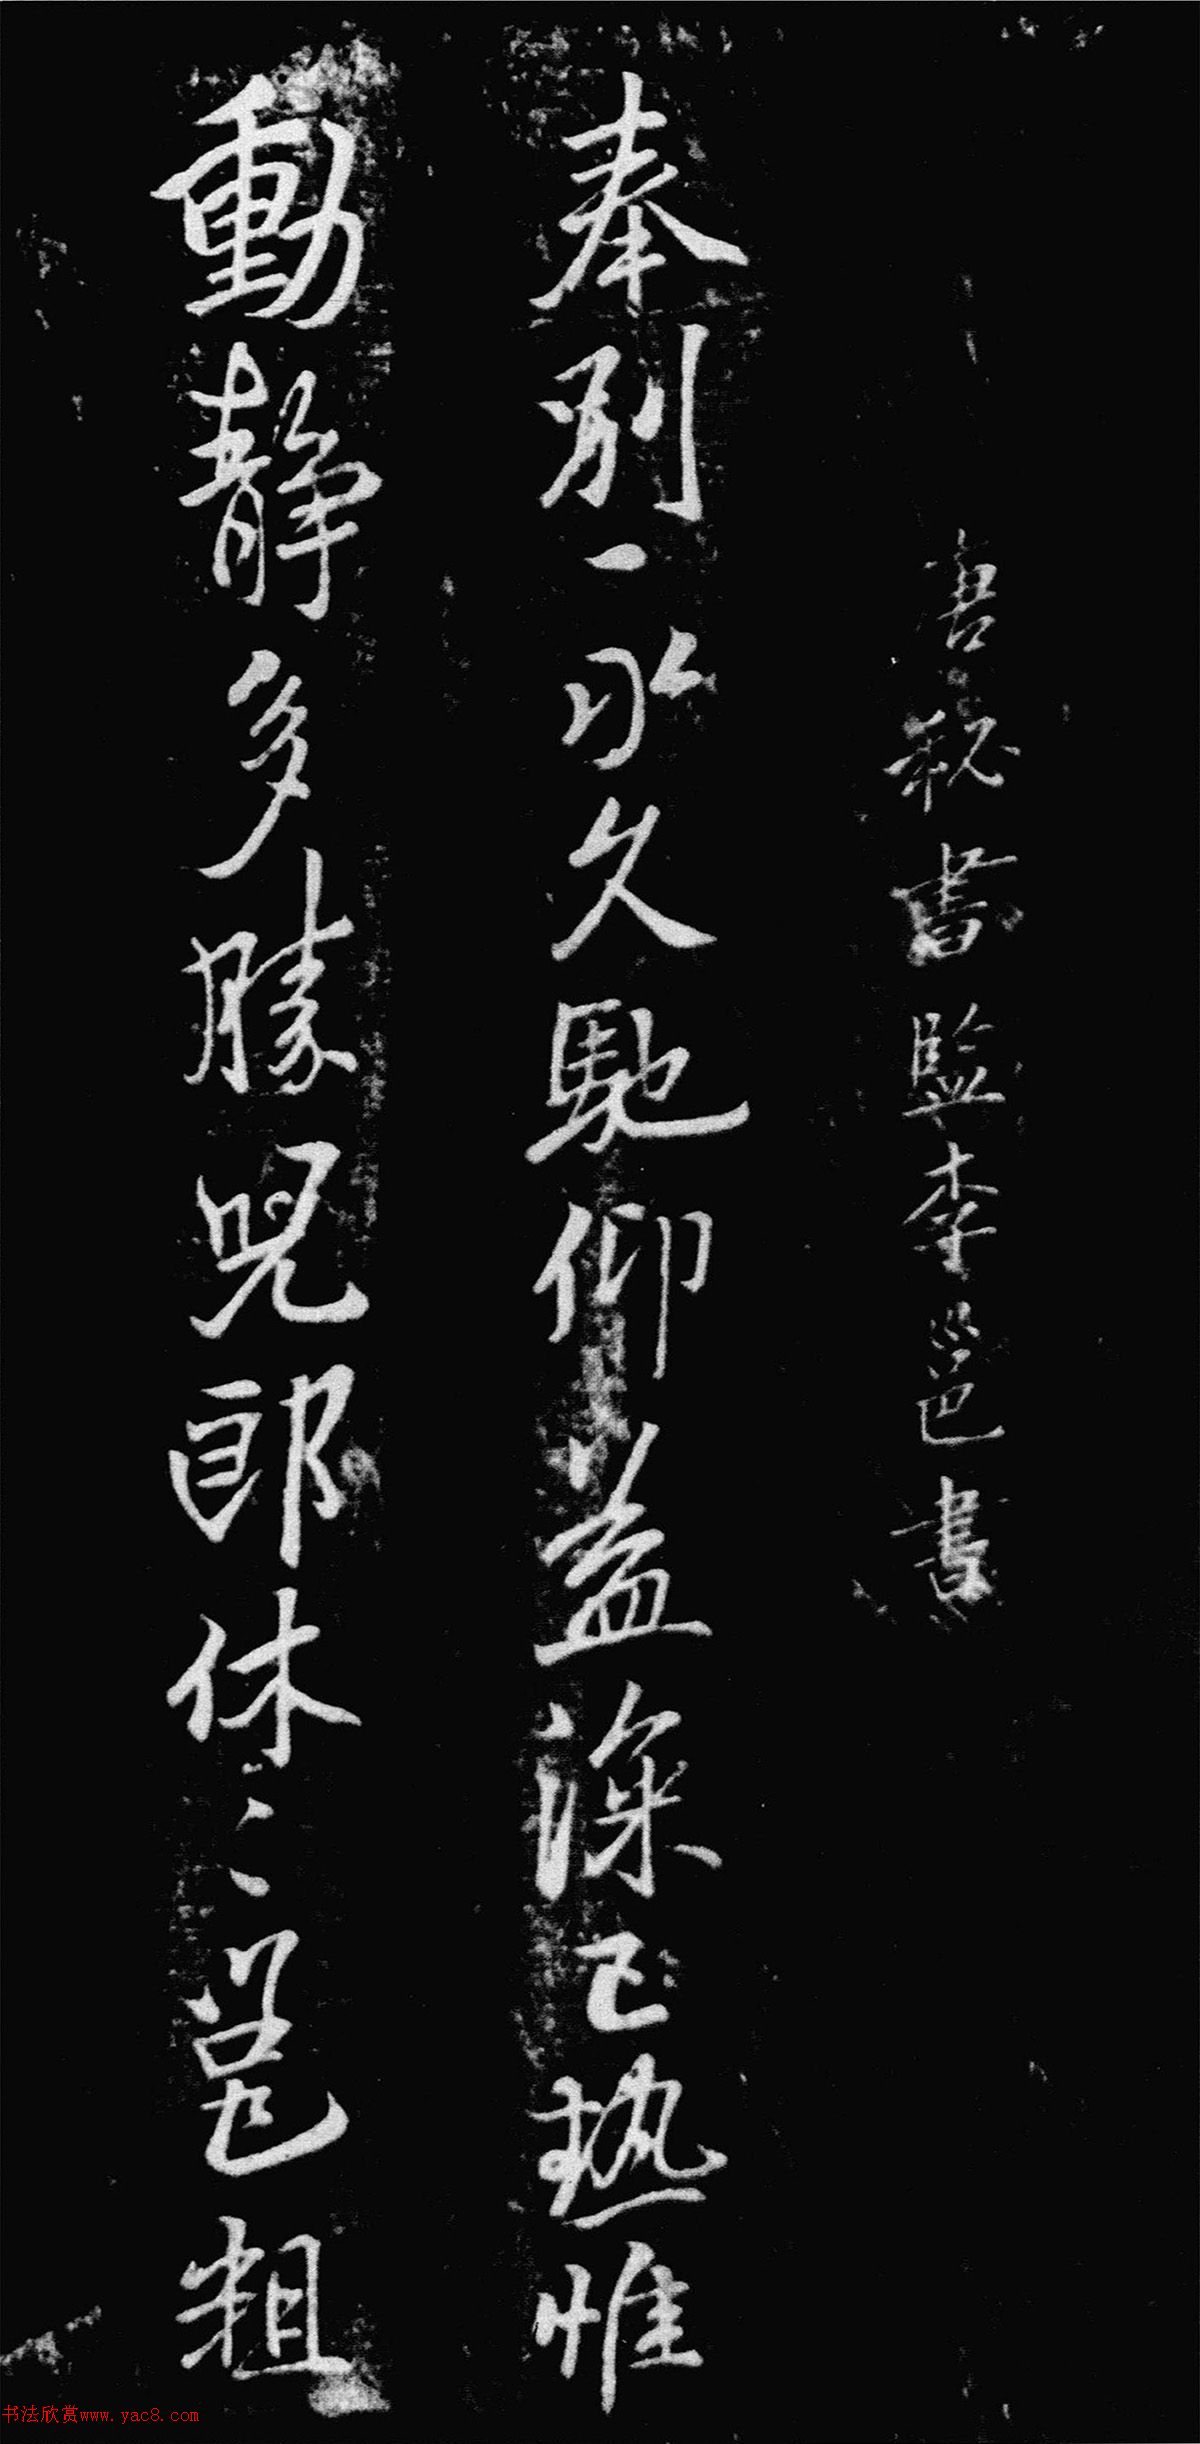 唐秘書監李邕書
奉別久馳仰益深已熱惟
動靜多勝兒郎休〻邕粗
书法欣赏www.yac8.com